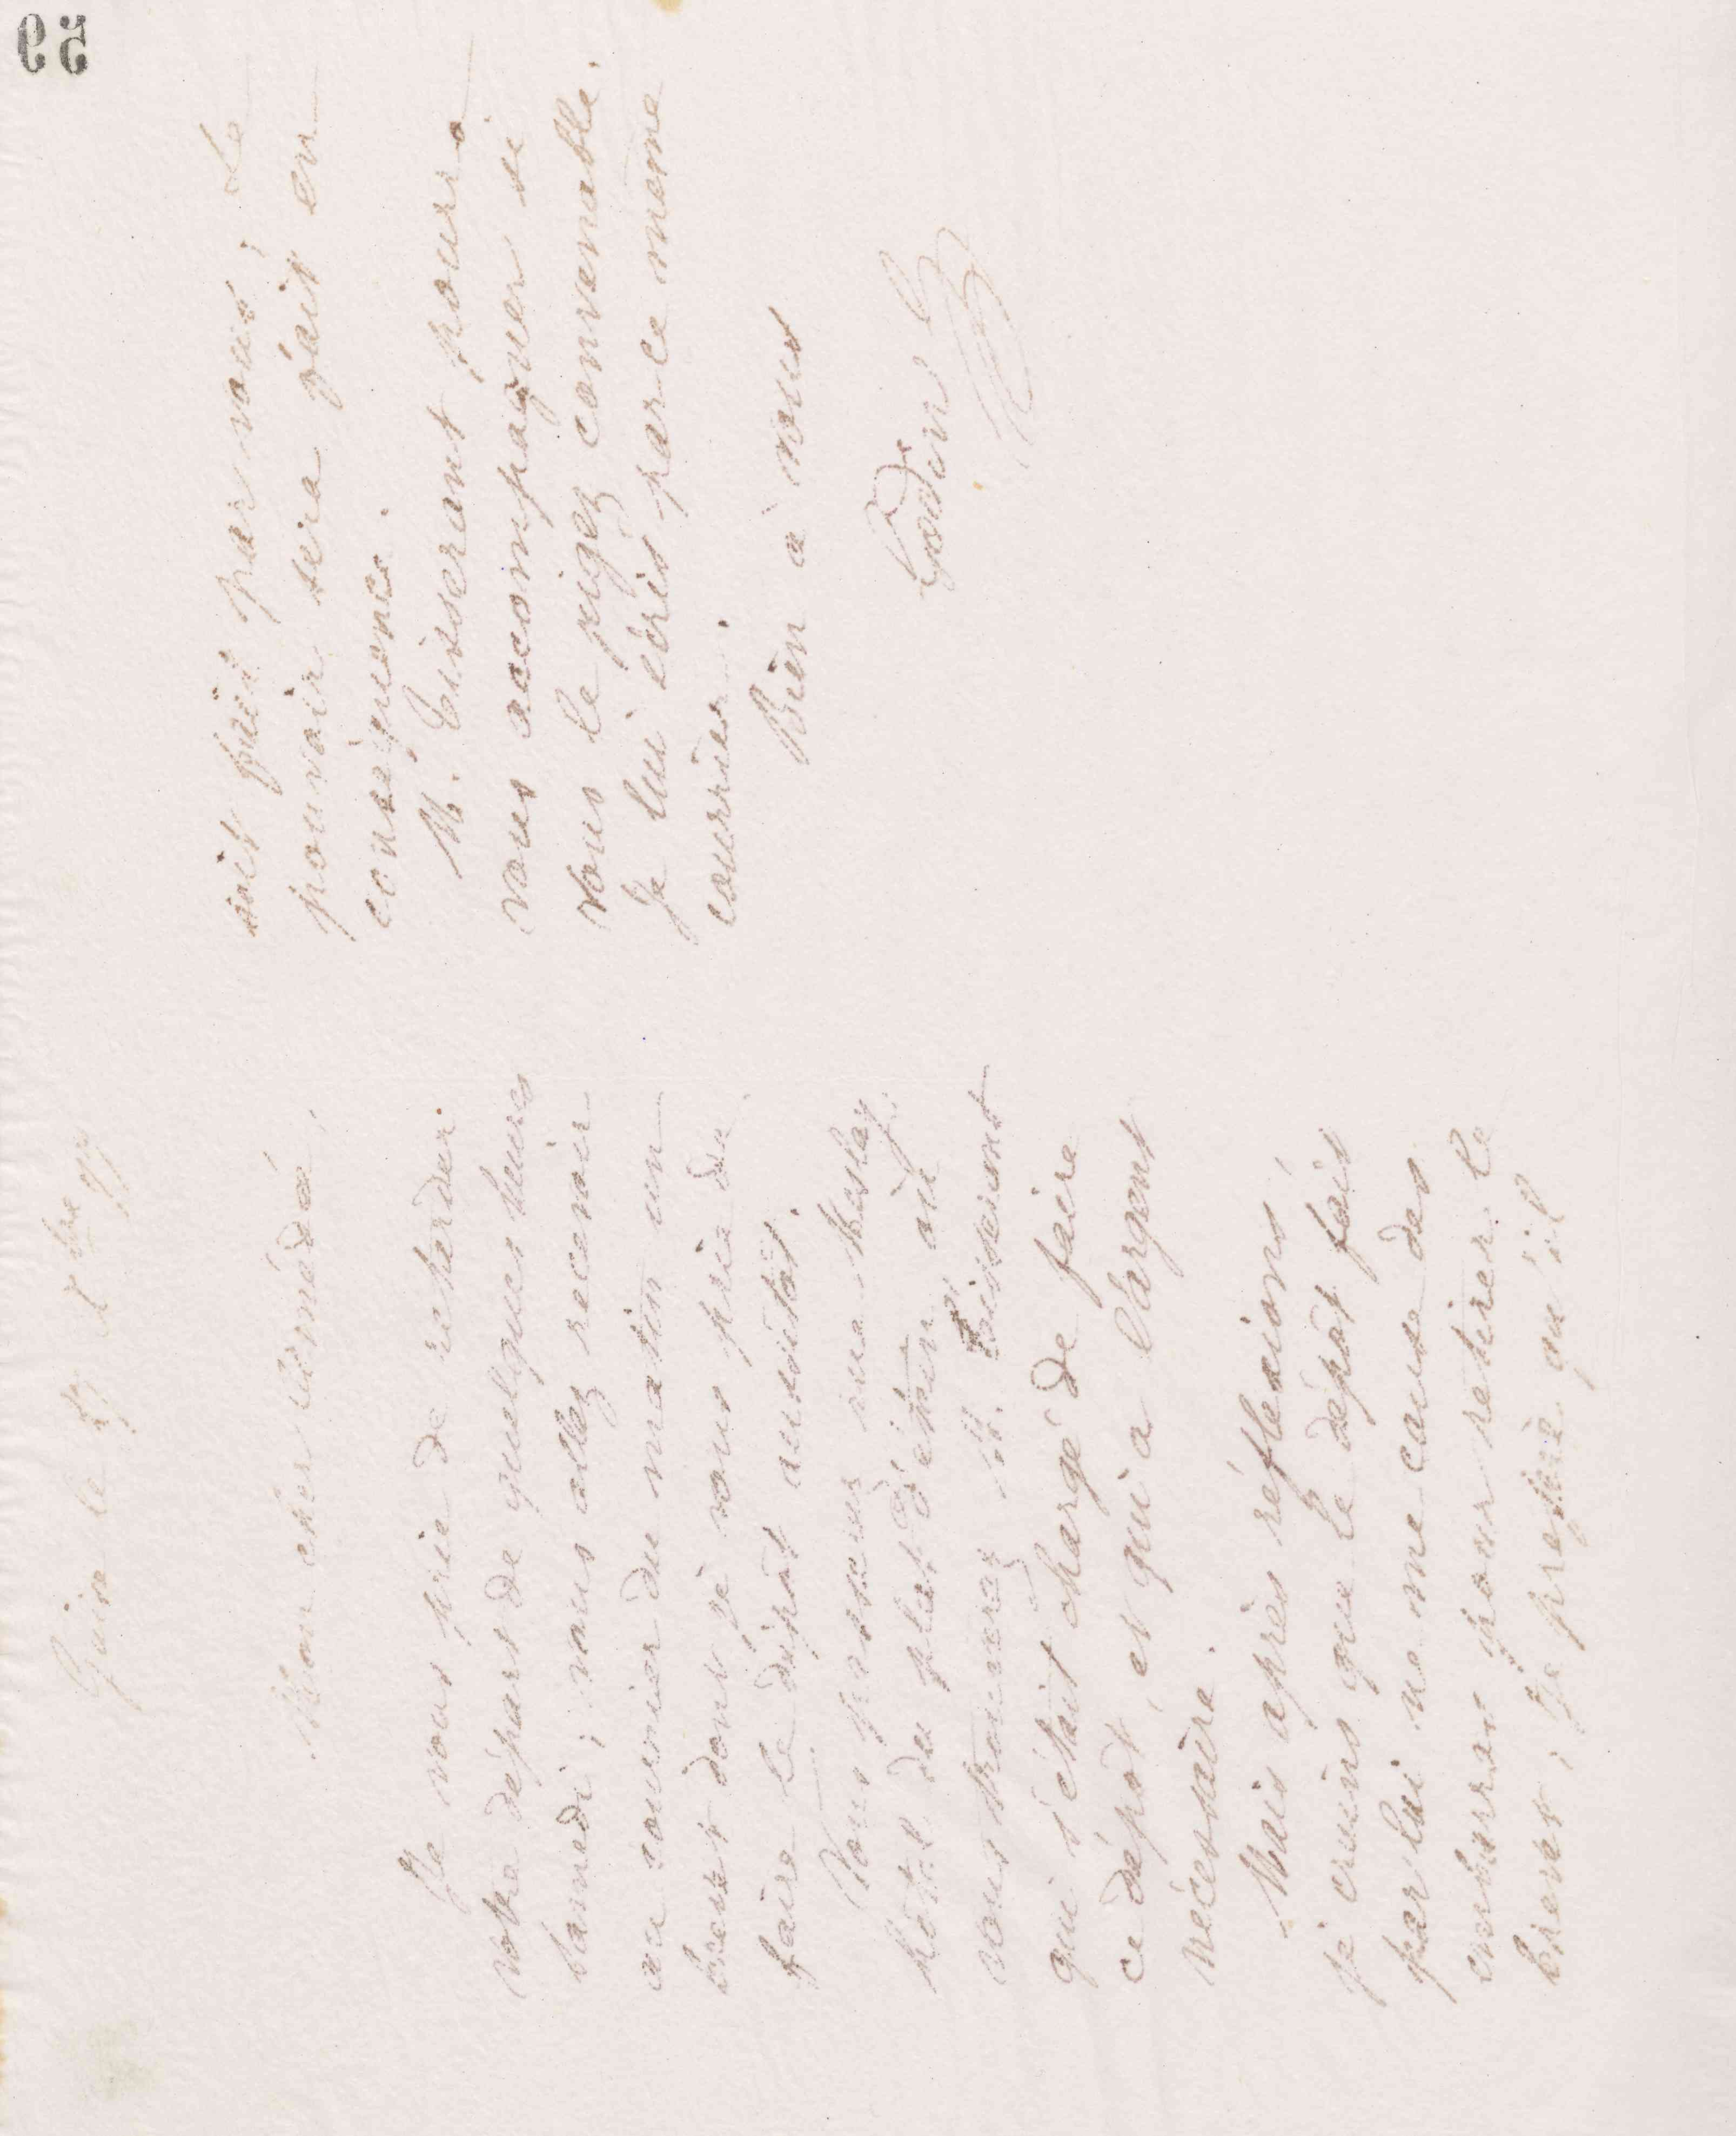 59
Guise le 27 8bre 77
Mon cher
Je vous prie de retarder
votre départ de quelques heures
samedi ; vous allez recevoir
au courrier du matin un
brevet dont je vous prie de
faire le dépôt aussitôt.
Vous passerez rue Meslay
hôtel du plat d'étain, où
vous trouverez M. Tisserant
qui s'était chargé de faire
ce dépôt, et qui a l'argent
nécessaire.
Mais après réflexions
je crains que le dépôt fait
par lui ne me cause des
embarras pour retirer le
brevet ; Je préfère qu'il
soit fait par vous ; Le
pouvoir sera fait en
conséquence.
M. Tisserant pourra
vous accompagner si
vous le jugez convenable.
Je lui écris par le même
courrier.
Bien à vous
Godin